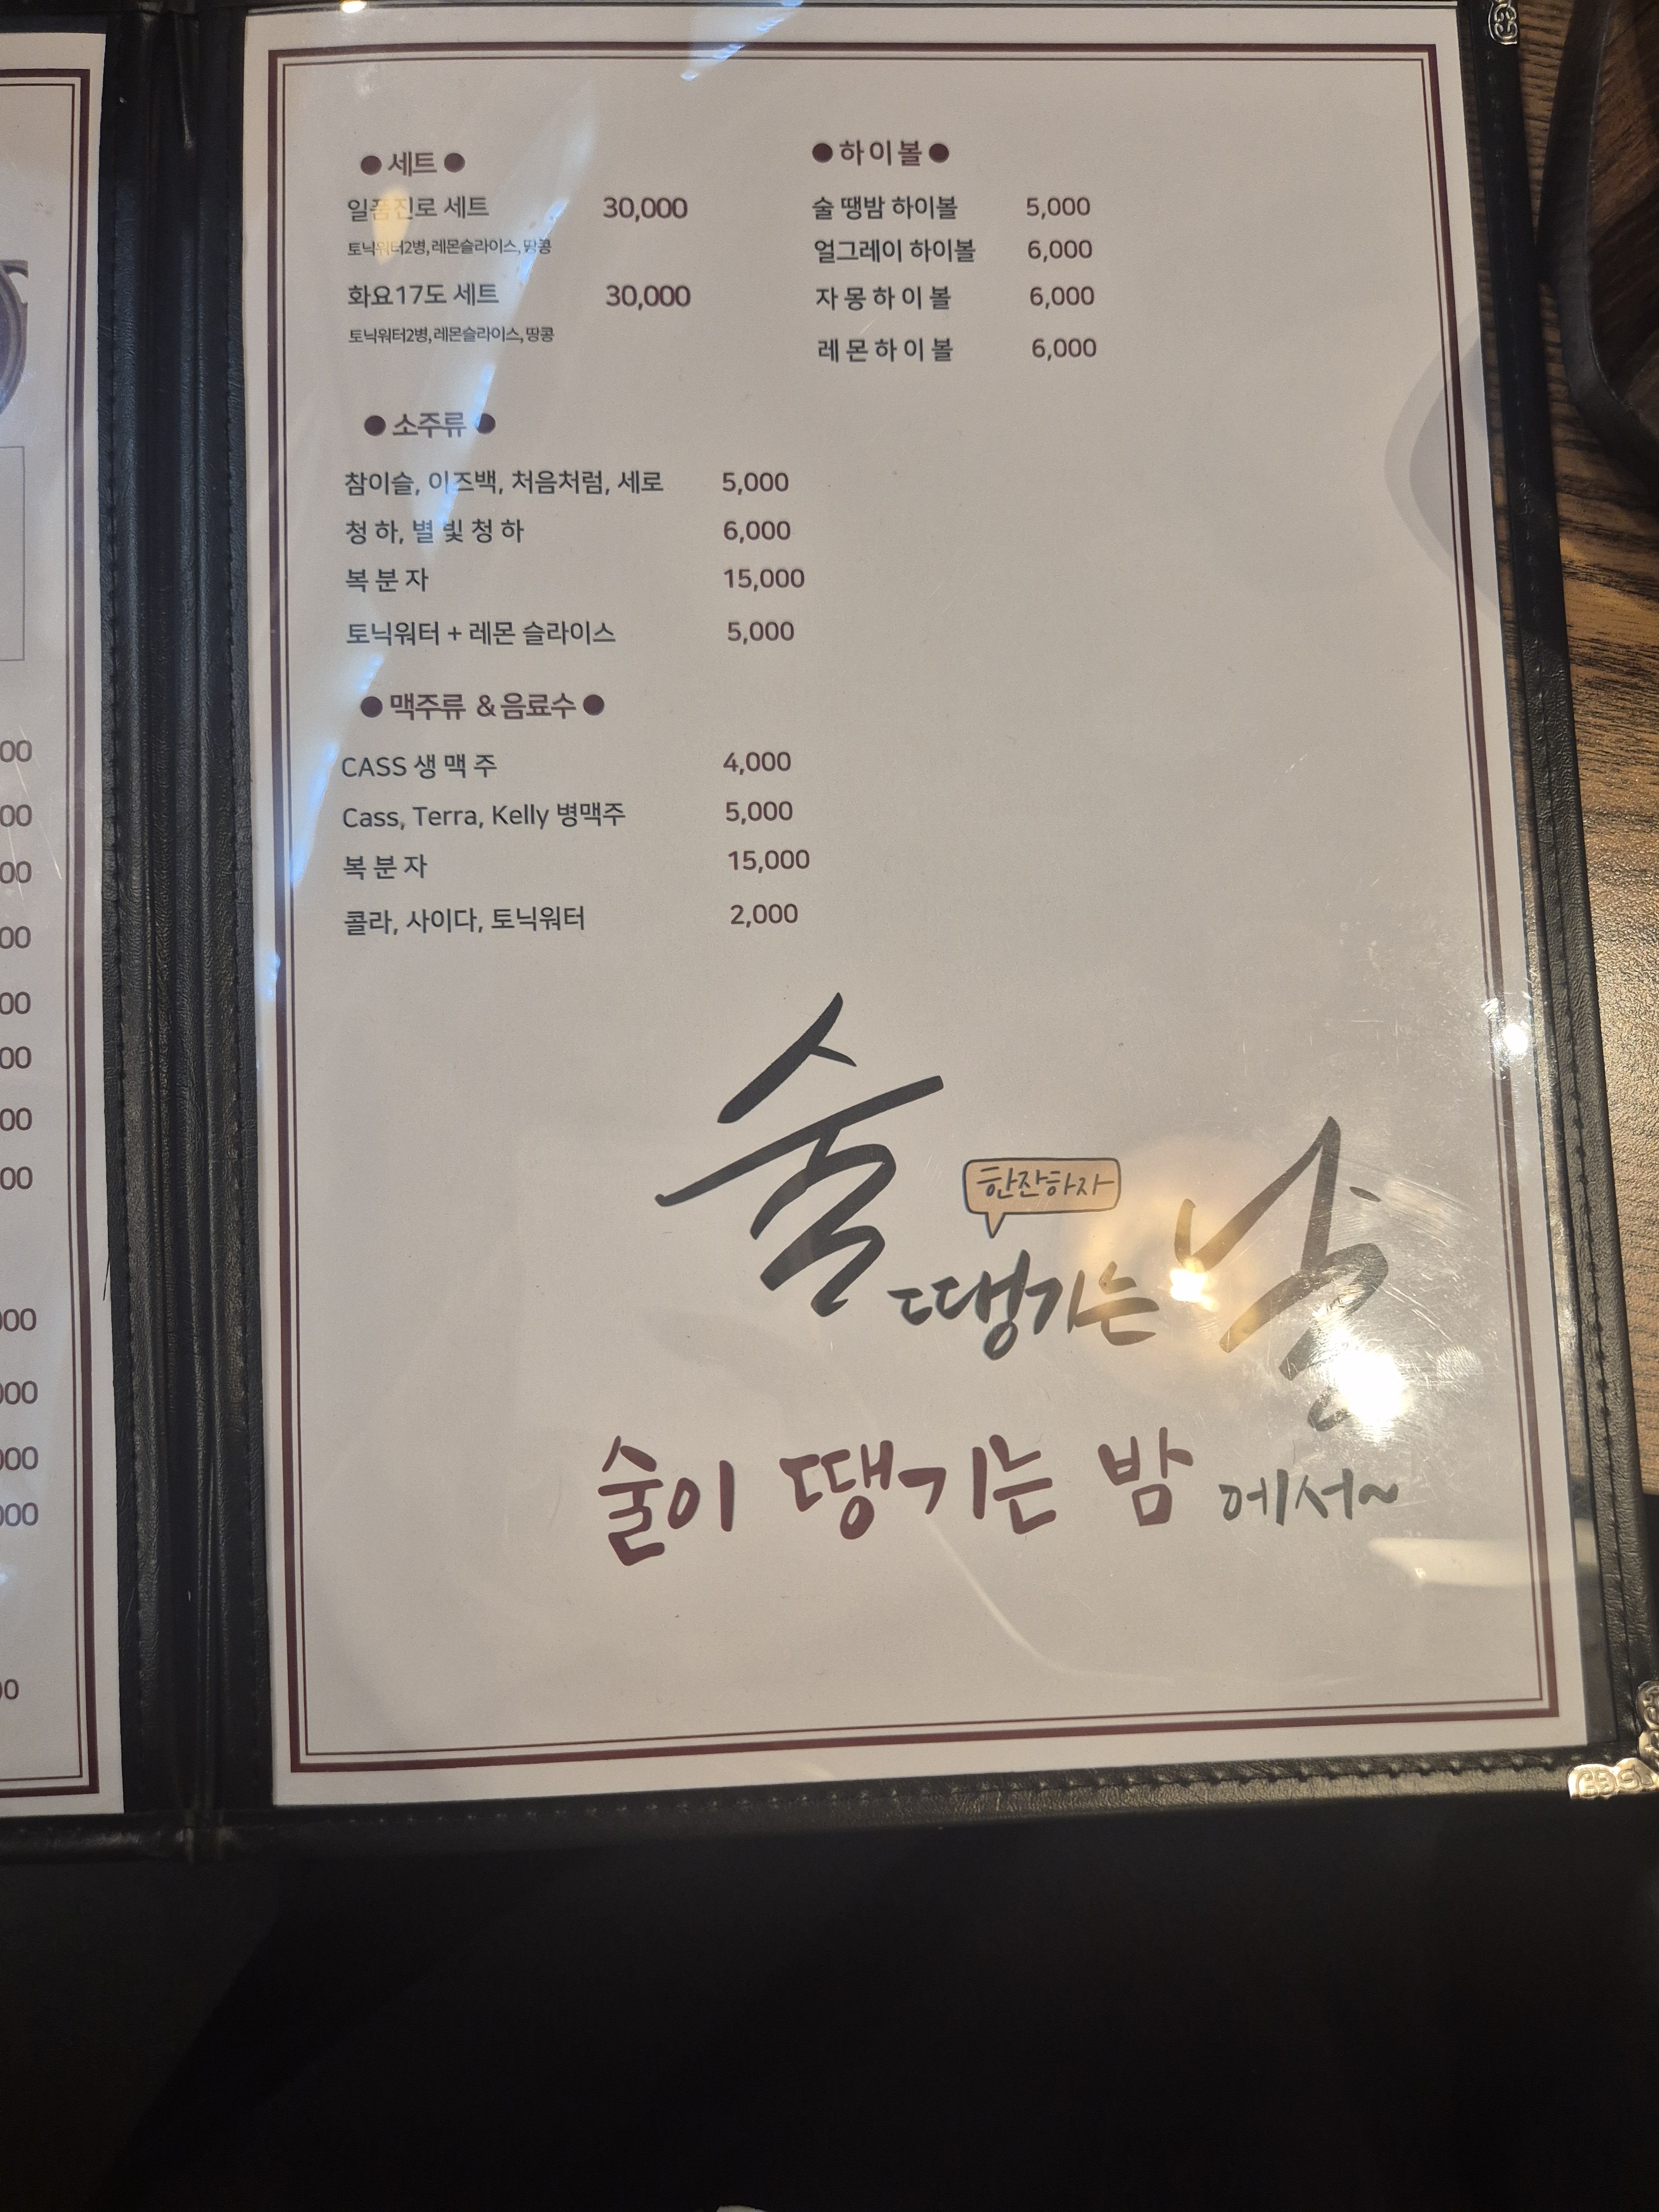 ● 세트 ●
일품진로 세트 30,000
토닉워터2병, 레몬슬라이스, 땅콩
화요17도 세트 30,000
토닉워터2병, 레몬슬라이스, 땅콩
● 하이볼 ●
술 땡밤 하이볼 5,000
얼그레이 하이볼 6,000
자 몽 하 이 볼 6,000
레 몬 하 이 볼 6,000
● 소주류 ●
참이슬, 이즈백, 처음처럼, 세로 5,000
청 하, 별 빛 청 하 6,000
복 분 자 15,000
토닉워터 + 레몬 슬라이스 5,000
● 맥주류 & 음료수 ●
CASS 생 맥 주 4,000
Cass, Terra, Kelly 병맥주 5,000
복 분 자 15,000
콜라, 사이다, 토닉워터 2,000
한잔하자
술 땡기는 낭
술이 땡기는 밤 에서~